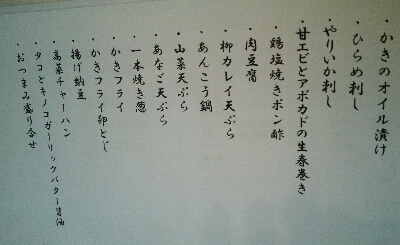 ・かきのオイル漬け
・ひらめ刺し
・やりいか刺し
・甘エビとアボカドの生春巻き
・鶏塩焼きポン酢
・肉豆腐
・柳カレイ天ぷら
・あんこう鍋
・山菜天ぷら
・あなご天ぷら
・一本焼き葱
・かきフライ
・かきフライ卵とじ
・揚げ納豆
・高菜チャーハン
・タコとキノコガーリックバター醤油
・おつまみ盛り合せ